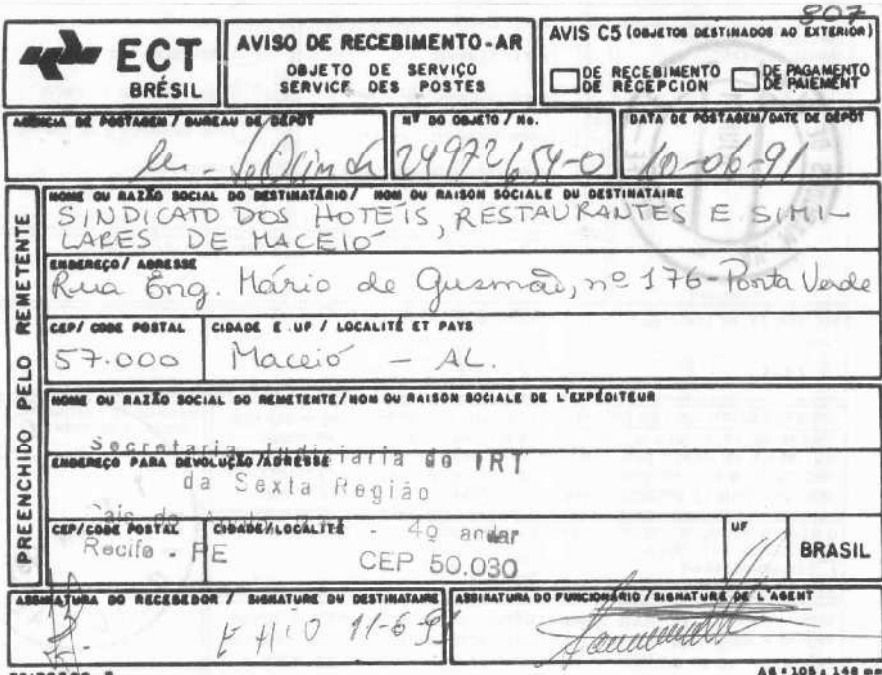 807
ECT
BRÉSIL
AVISO DE RECEBIMENTO-AR
OBJETO DE SERVIÇO
SERVICE DES POSTES
AVIS C5 (OBJETOS DESTINADOS AO EXTERIOR)
DE RECEBIMENTO
DE RÉCEPCION
DE PAGAMENTO
DE PAIEMENT
AGÊNCIA DE POSTAGEM / BUREAU DE DÉPÔT
Nº DO OBJETO / No.
24972654-0
DATA DE POSTAGEM/DATE DE DÉPÔT
10-06-91
PREENCHIDO PELO REMETENTE
NOME OU RAZÃO SOCIAL DO DESTINATÁRIO / NOM OU RAISON SOCIALE DU DESTINATAIRE
SINDICATO DOS HOTEÍS, RESTAURANTES E SIMI-
LARES DE MACEIÓ
ENDEREÇO / ADRESSE
Rua Eng. Mário de Gusmão, nº 176-Ponta Verde
CEP/ CODE POSTAL
57.000
CIDADE E UF / LOCALITÉ ET PAYS
Maceió - AL.
NOME OU RAZÃO SOCIAL DO REMETENTE/NOM OU RAISON SOCIALE DE L'EXPÉDITEUR
Secretaria Judiciaria do TRT
ENDEREÇO PARA DEVOLUÇÃO/ADRESSE
da Sexta Região
Cais do
CEP/CODE POSTAL
CIDADE/LOCALITÉ
- 4º andar
Recife - PE
CEP 50.030
UF
BRASIL
ASSINATURA DO RECEBEDOR / SIGNATURE DU DESTINATAIRE
11-6-91
ASSINATURA DO FUNCIONÁRIO / SIGNATURE DE L'AGENT
A6 = 105 x 148 mm